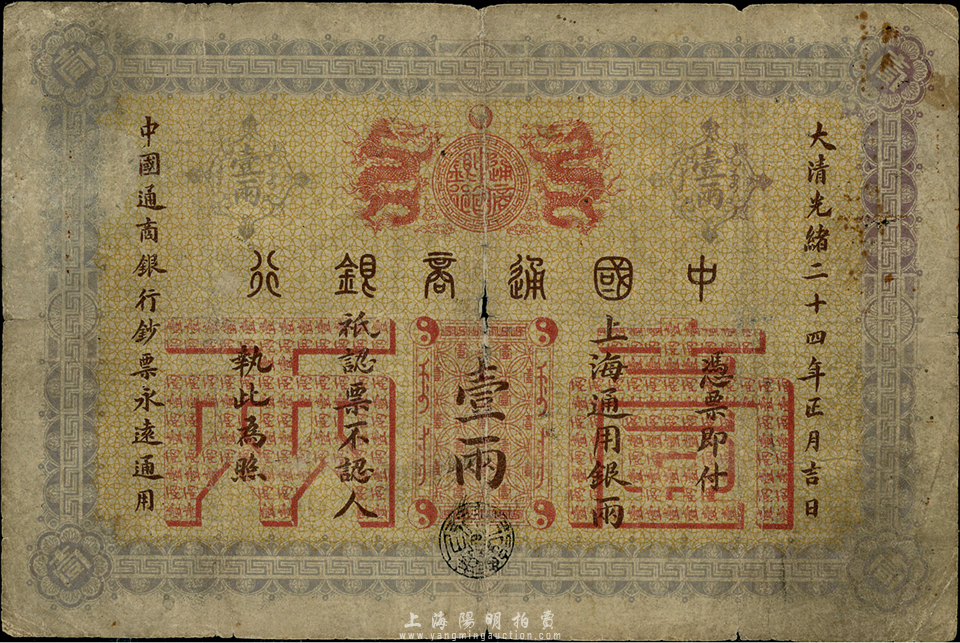 大清光緒二十四年正月吉日
通商
銀行
中國通商銀行
憑票即付
上海通用銀兩
壹兩
祇認票不認人
執此為照
中國通商銀行鈔票永遠通用
壹兩
壹兩
壹
壹
壹
壹
壹
兩
上海陽明拍賣
www.yangmingauction.com